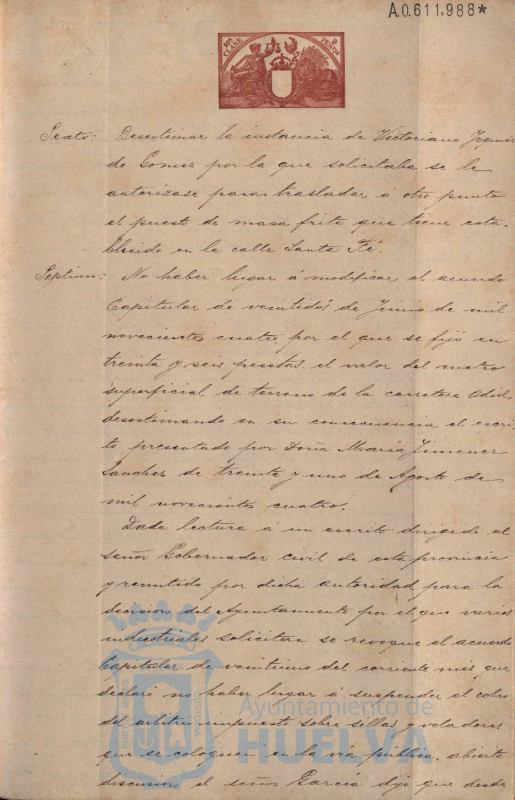 A.0.611,988*
10ª CLASE 2 PESETAS
Sexto: Desestimar la instancia de Victoriano
de Gomez por la que solicitaba se le
autorizase para trasladar á otro punto
el puesto de masa frita que tiene esta-
blecido en la calle Santa Fé.
Septimo: No haber lugar á modificar el acuerdo
Capitular de veintidós de Junio de mil
novecientos cuatro por el que se fijó en
treinta y seis pesetas el valor del metro
superficial de terreno de la carretera Odiel,
desestimando en su consecuencia el escri-
to presentado por Doña Maria Jimenez
Sanchez de treinta y uno de Agosto de
mil novecientos cuatro.
Dada lectura á un escrito dirigido al
señor Gobernador civil de esta provincia
y remitido por dicha autoridad para la
decision del Ayuntamiento por el que varios
industriales solicitan se revoque el acuerdo
Capitular de veintiuno del corriente mes que
declaró no haber lugar á suspender el cobro
del arbitrio impuesto sobre sillas y veladores
que se coloquen en la via publica, abierta
discusion el señor García dijo que desde
Ayuntamiento de
HUELVA